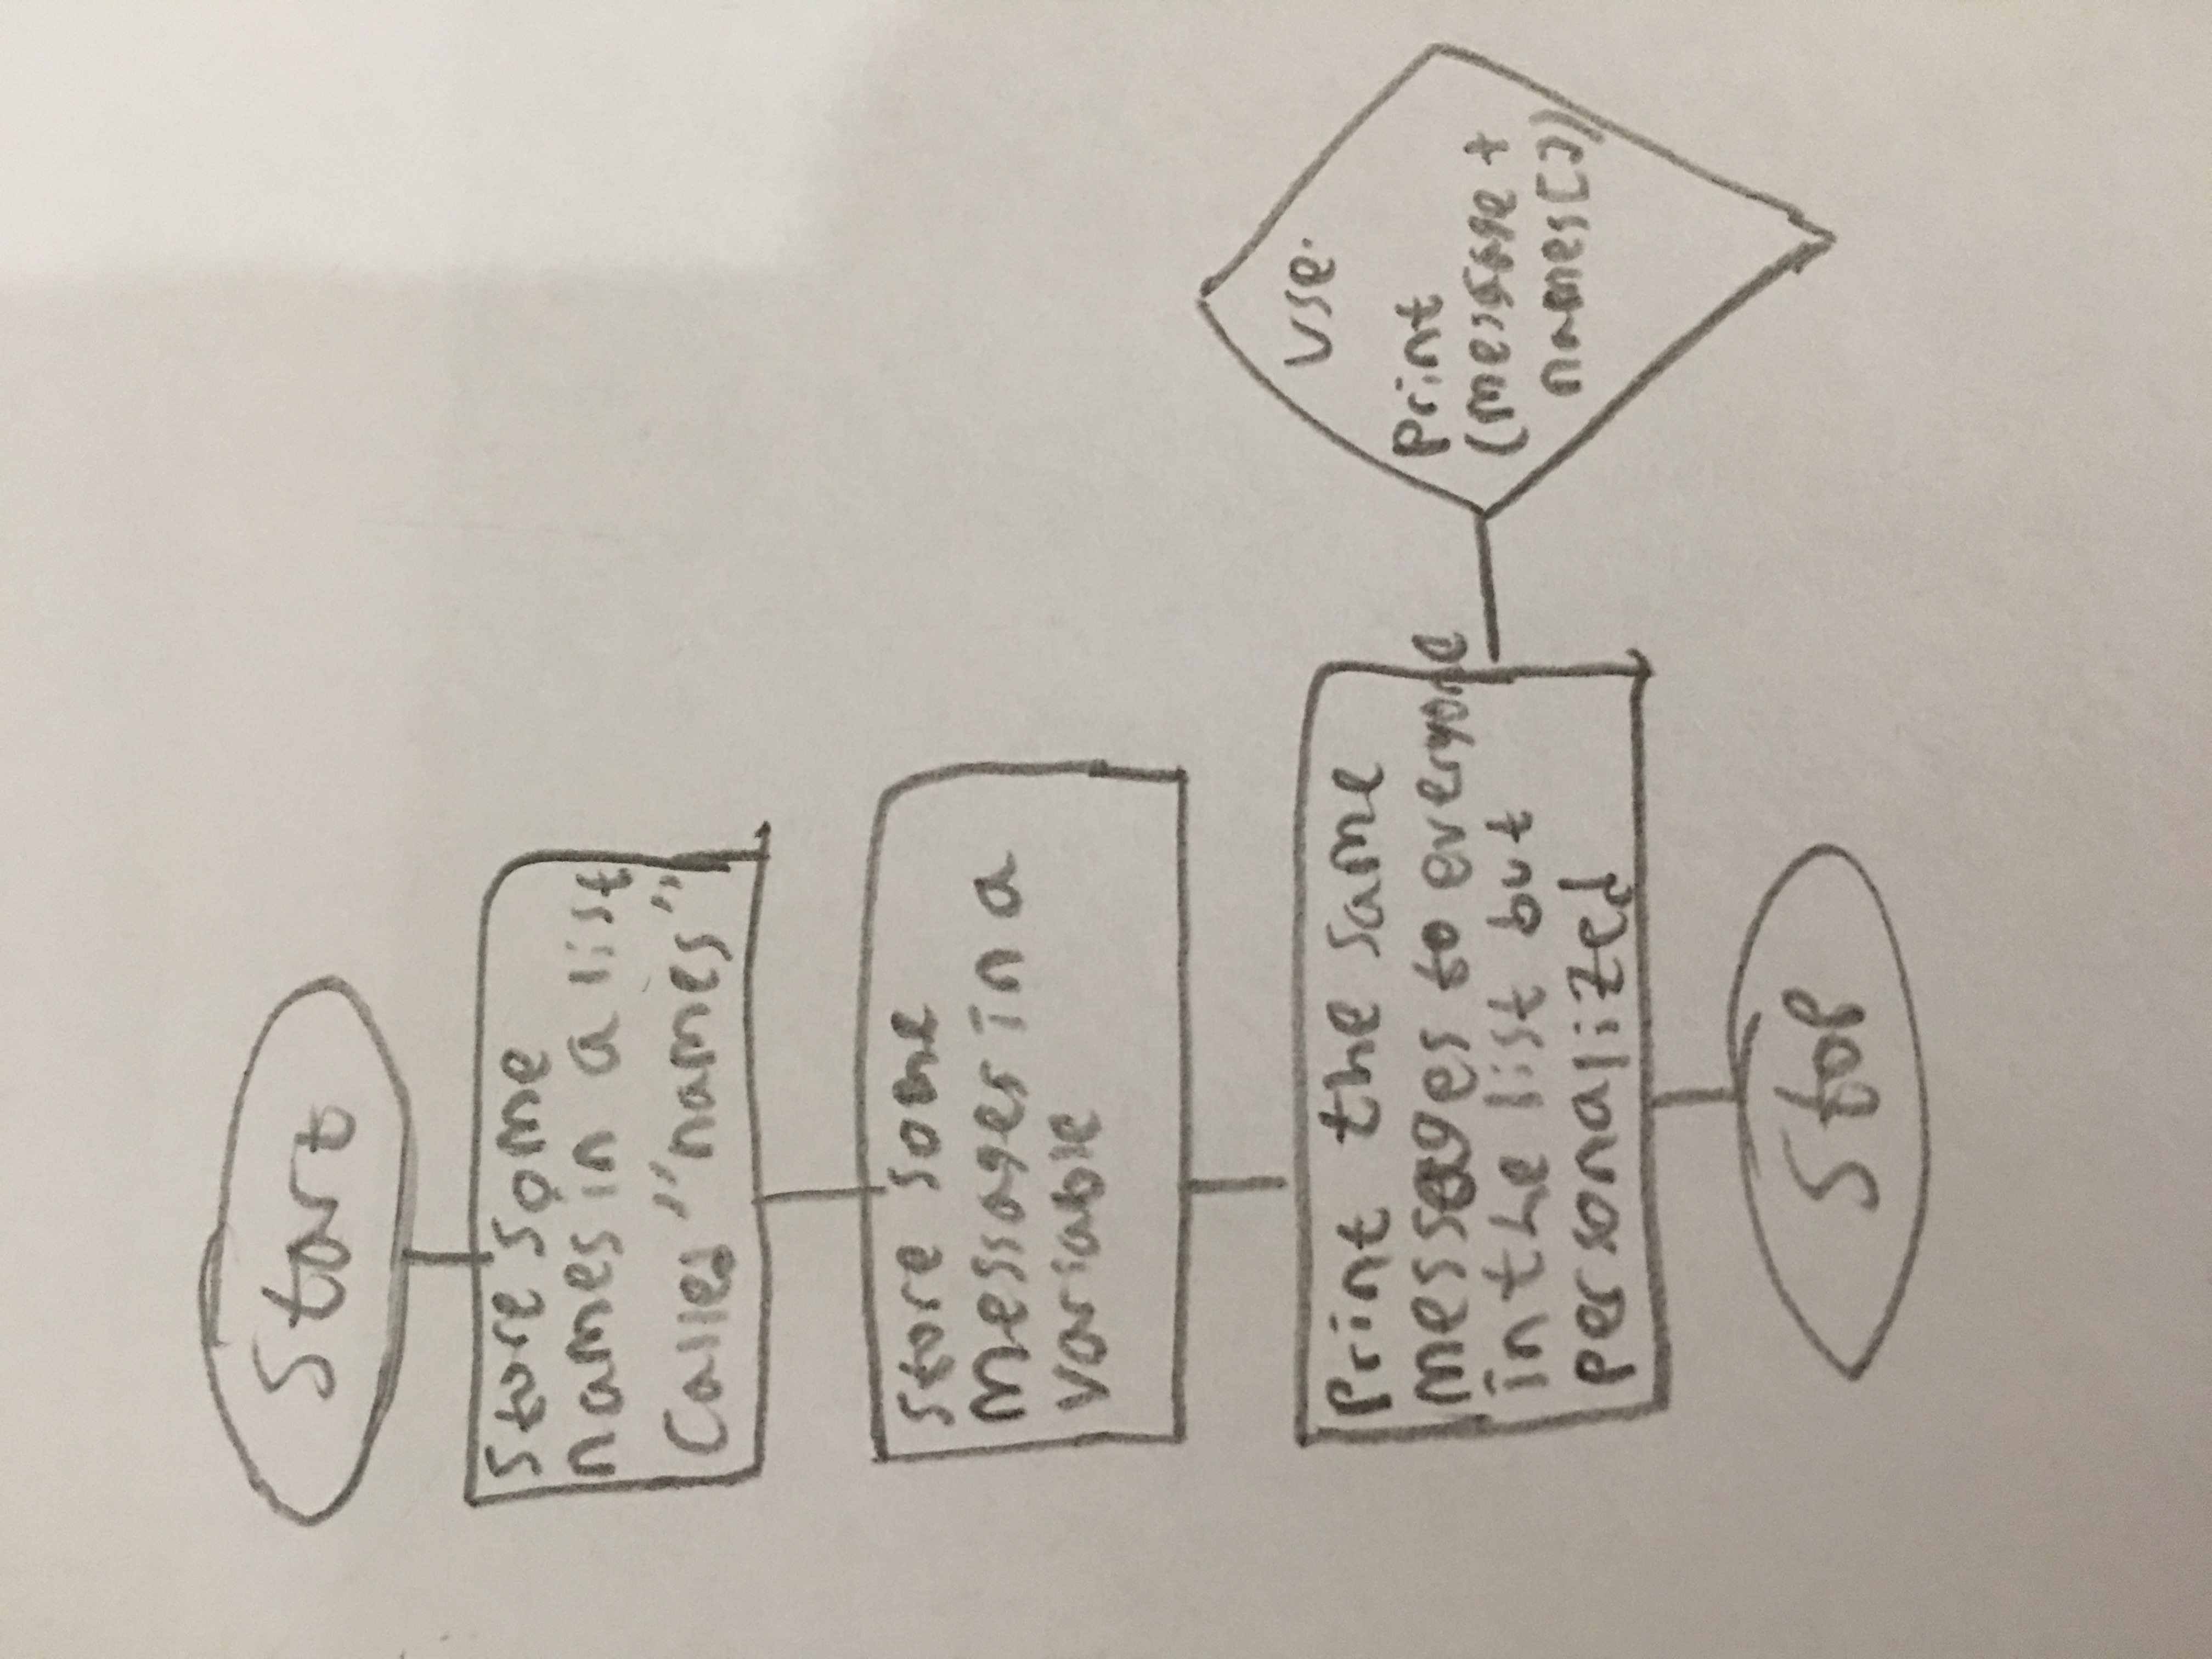 Start
Store some
names in a list
Called "names"
Store some
messages in a
variable
Print the same
messages to everyone
in the list but
personalized
Use.
Print
(message +
names[])
Stop